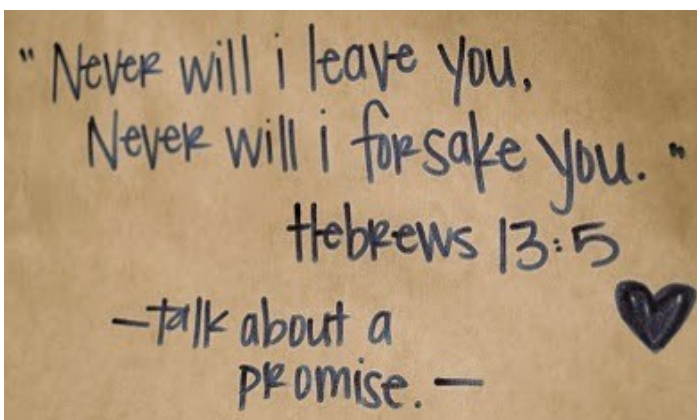 "Never will i leave you,
Never will i forsake you."
Hebrews 13:5
-talk about a
promise.-